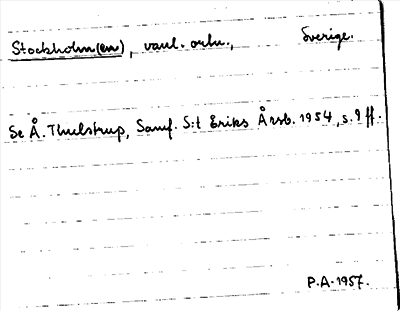 Stockholm(en), vanl. ortn., Sverige.
Se Å. Thulstrup, Samf. S:t Eriks Årsb. 1954, s. 9 ff.
P.A. 1957.